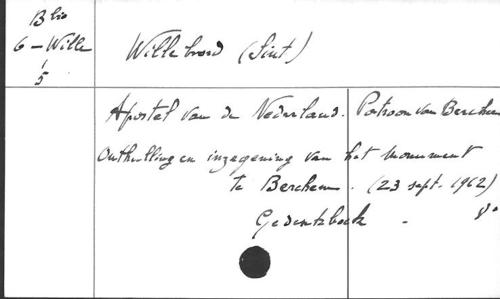 Bio
6 - Wille
1
5
Willebrord (Sint)
Apostel van de Nederland. Patroon van Berchem
Onthulling en inzegening van het monument
te Berchem. (23 sept. 1962)
Gedenkboek - 8°